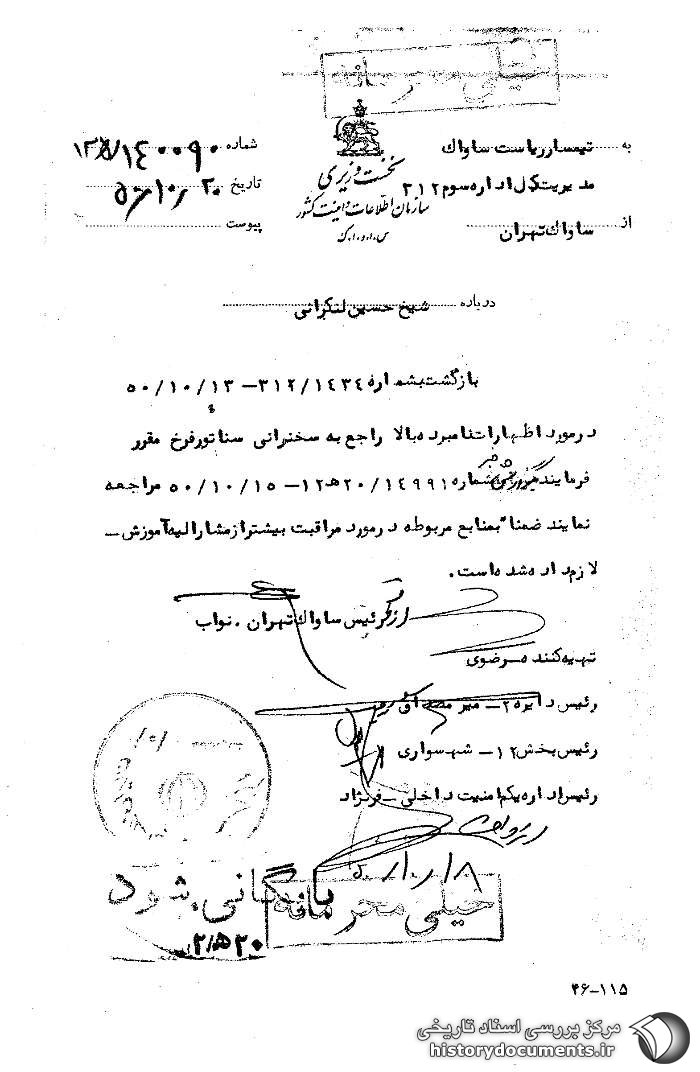 خیلی محرمانه
به تیمسار ریاست ساواک
مدیریت کل اداره سوم ۳۱۲
از ساواک تهران
نخست وزیری
سازمان اطلاعات و امنیت کشور
س.ا.و.ا.ک
شماره
تاریخ ۵۰/۱۰/۲۰
پیوست
درباره شیخ حسین لنکرانی
بازگشت بشماره ۳۱۲/۱۴۳۴ – ۵۰/۱۰/۱۳
درمورد اظهارات نامبرده بالا راجع به سخنرانی سناتور فرخ مقرر
فرمایند شماره ۲۰/۱۴۹۹۱ ه‍ ۱۲ – ۵۰/۱۰/۱۵ مراجعه
نمایند ضمنا" بمنابع مربوطه درمورد مراقبت بیشتر از مشارالیه آموزش –
لازم داده شده است.
رئیس ساواک تهران . نواب
تهیه کننده – رضوی
رئیس دایره ۲ –
رئیس بخش ۱۲ – شهسواری
رئیس اداره یکم امنیت داخلی – فرنژاد
۵۰/۱۰/۱۸
بایگانی شود
خیلی محرمانه
۲۰ ه‍ ۲
۴۶–۱۱۵
مرکز بررسی اسناد تاریخی
historydocuments.ir